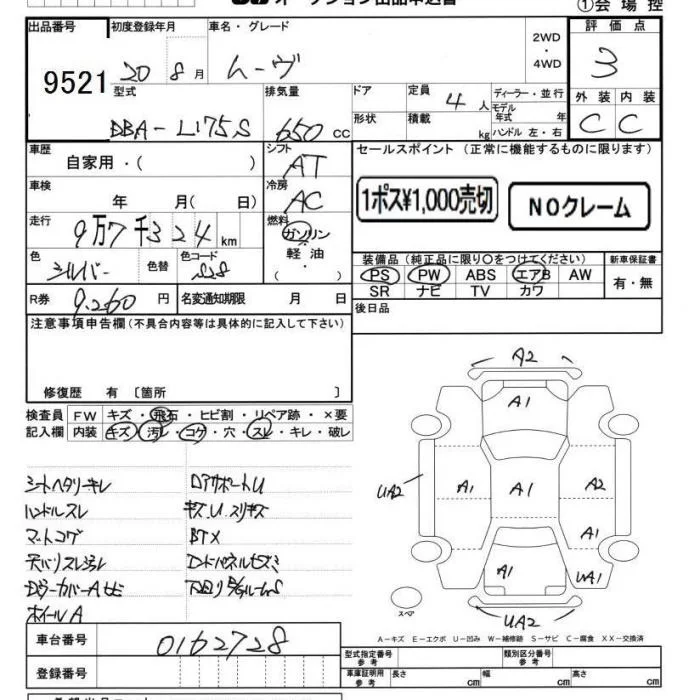 オークション出品申込書
①会場控
出品番号 初度登録年月 車名・グレード 2WD ・ 4WD 評価点
9521 20 8月 ムーヴ 3
型式 排気量 ドア 定員 4人 ディーラー・並行 外装 内装
DBA-L175S 650cc 形状 積載 kg モデル年式 年 ハンドル 左・右 C C
車歴 シフト セールスポイント (正常に機能するものに限ります)
自家用・( ) AT
車検 冷房 1ポス¥1,000売切 NOクレーム
年 月( 日) AC
走行 燃料
9万7千324km ガソリン
色 色替 色コード 軽油 装備品(純正品に限り○をつけてください) 新車保証書
シルバー S28 ( ) PS PW ABS エアB AW 有・無
SR ナビ TV カワ
R券 9,260円 名変通知期限 月 日 後日品
注意事項申告欄(不具合内容等は具体的に記入して下さい)
修復歴 有 〔箇所 〕
検査員 FW キズ・飛石・ヒビ割・リペア跡・×要
記入欄 内装 キズ・汚レ・コゲ・穴・スレ・キレ・破レ
シートヘタリキレ DアサポートU
ハンドルスレ キズ,U,スリキズ
マットコゲ BTX
天バリスレ汚レ
ホイールA
A2
A1
UA2 A1 A1 A2
A1
A1 UA1
スペア UA2
A-キズ E-エクボ U-凹み W-補修跡 S-サビ C-腐食 XX-交換済
車台番号 0162728
型式指定番号 参考 類別区分番号 参考
登録番号 車庫証明用 参考 長さ cm 幅 cm 高さ cm